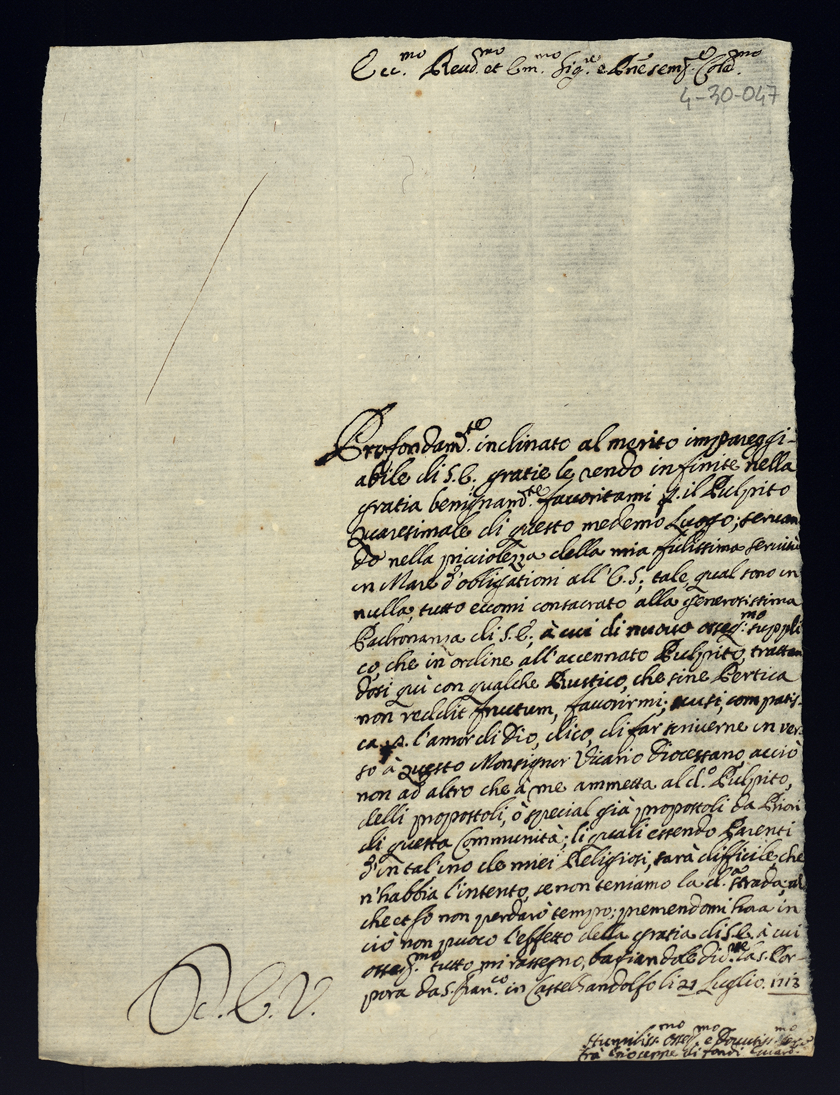 Ecc.mo Reud.mo et Em.mo Sig.re e Prñe semp.e Col.mo
4-30-047
Profondam.te inclinato al merito impareggi-
abile di S. E. gratie le rendo infinite nella
gratia benignam.te favoritami p. il Pulpito
Quaresimale di questo medemo Luogo; servan
do nella picciolezza della mia fidissima servitù
un Mare d'obligationi all' E. S., tale, qual sono in
nulla, tutto eccomi consacrato alla generosissima
Padronanza di S. E., à cui di nuovo osseq.mo suppli
co, che in ordine all'accennato Pulpito, trattan
dosi quì con qualche Rustico, che sine Pertica
non reddit fructum, favorirmi, scusi, compatis-
ca p. l'amor di Dio, dico, di far scriverne in ver
so à questo Monsignor Vicario Diocesano, acciò
non ad altro che à me ammetta al d.o Pulpito,
delli propostoli, ò special già propostoli da Priori
di questa Communità; li quali essendo Parenti
d'un tal'uno de miei Religiosi, sarà difficile, che
n'habbia l'intento, se non teniamo la d.a strada; al
che non perdarò tempo; premendomi hora in
ciò non puoco l'effetto della gratia di S. E. à cui
osseq.mo tutto mi rassegno, baciandole la s. Por-
pora da S. Fran.co in Castelhandolfo li 21 Luglio. 1713
D. E. V.
Humiliss.mo Osseq.mo e Devotiss.mo
frà Gioseppe di fondi Guard.